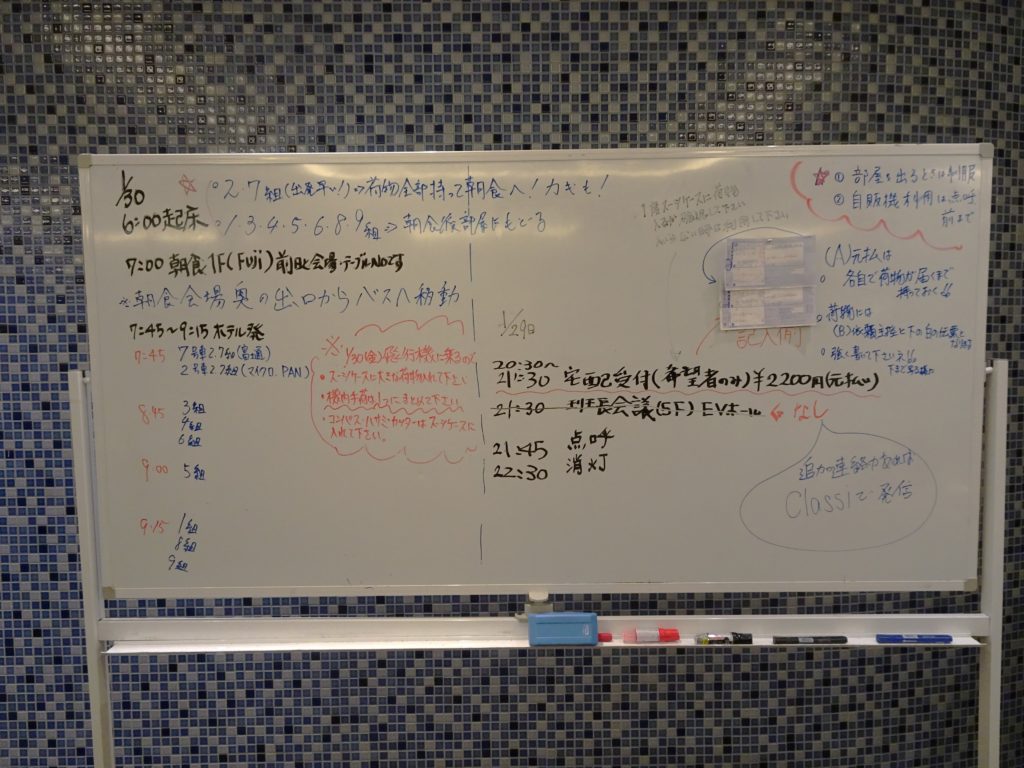 1/30
6:00起床
☆ ○2.7組(出発早い!)⇒荷物全部持って朝食へ!カギも!
○1.3.4.5.6.8.9組⇒朝食後部屋にもどる
7:00 朝食 1F(Fuji) 前日と会場・テーブルNoです
※朝食会場奥の出口からバスへ移動
7:45〜9:15 ホテル発
7:45 7号車2.7組(富通)
2号車2.7組(マイクロ.PAN)
8:45 3組
4組
6組
9:00 5組
9:15 1組
8組
9組
※1/30(金)飛行機に乗るので
・スーツケースに大きな荷物入れて下さい
・機内手荷は1つにまとめて下さい
・コンパス・ハサミ・カッターはスーツケースに
入れて下さい。
1/29日
20:30〜
21:30 宅配受付(希望者のみ)¥2200円(元払い)
21:30 班長会議(5F) EVホール ← なし
21:45 点呼
22:30 消灯
追加の連絡
Classiで発信
① 部屋を出るときは
② 自販機利用は点呼
前まで
記入例
(A)元払は
各自で荷物が届くまで
持っておく!!
○荷物には
○強く書いて下さい!!